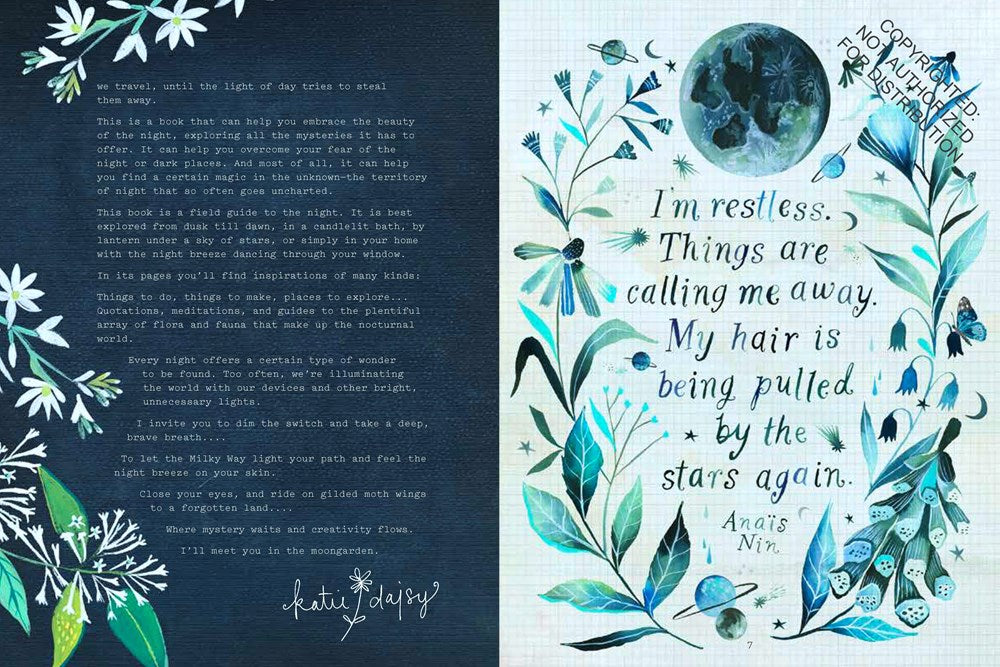 we travel, until the light of day tries to steal
them away.
This is a book that can help you embrace the beauty
of the night, exploring all the mysteries it has to
offer. It can help you overcome your fear of the
night or dark places. And most of all, it can help
you find a certain magic in the unknown—the territory
of night that so often goes uncharted.
This book is a field guide to the night. It is best
explored from dusk till dawn, in a candlelit bath, by
lantern under a sky of stars, or simply in your home
with the night breeze dancing through your window.
In its pages you'll find inspirations of many kinds:
Things to do, things to make, places to explore...
Quotations, meditations, and guides to the plentiful
array of flora and fauna that make up the nocturnal
world.
Every night offers a certain type of wonder
to be found. Too often, we're illuminating
the world with our devices and other bright,
unnecessary lights.
I invite you to dim the switch and take a deep,
brave breath....
To let the Milky Way light your path and feel the
night breeze on your skin.
Close your eyes, and ride on gilded moth wings
to a forgotten land....
Where mystery waits and creativity flows.
I'll meet you in the moongarden.
katie daisy
COPYRIGHTED:
NOT AUTHORIZED
FOR DISTRIBUTION
I'm restless.
Things are
calling me away.
My hair is
being pulled
by the
stars again.
Anaïs
Nin
7